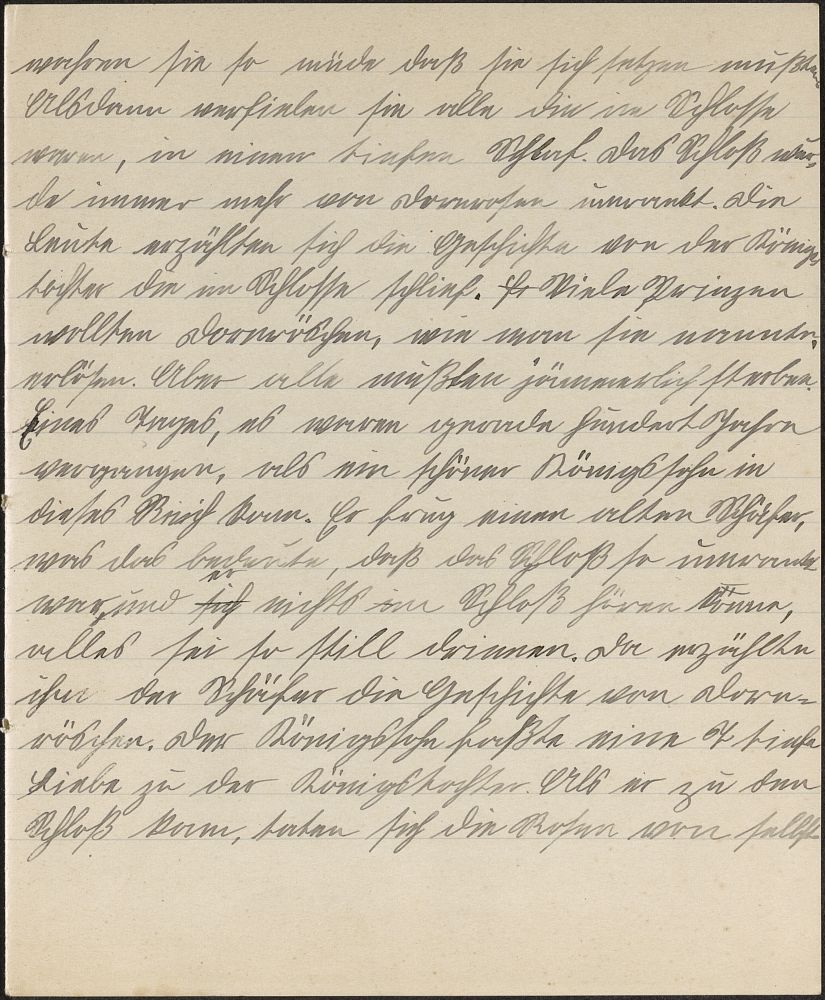 wahren sie so müde daß sie sich setzen mußten
Alsdann verfielen sie alle die im Schlosse
waren, in einen tiefen Schlaf. Das Schloß wur-
de immer mehr von Dornrosen umrankt. Die
Leute erzählten sich die Geschichte von der Königs-
tochter die im Schlosse schlief. Viele Prinzen
wollten Dornröschen, wie man sie nannte,
erlösen. Aber alle mußten jämmerlich sterben.
Eines Tages, es waren gerade hundert Jahre
vergangen, als ein schöner Königssohn in
dieses Reich kam. Er frug einen alten Schäfer,
was das bedeute, daß das Schloß so umrankt
war, und er nichts im Schloß hören könne,
alles sei so still drinnen. Da erzählte
ihm der Schäfer die Geschichte von Dorn-
röschen. Der Königssohn faßte eine tiefe
Liebe zu der Königstochter. Als er zu dem
Schloß kam, taten sich die Rosen von selbst